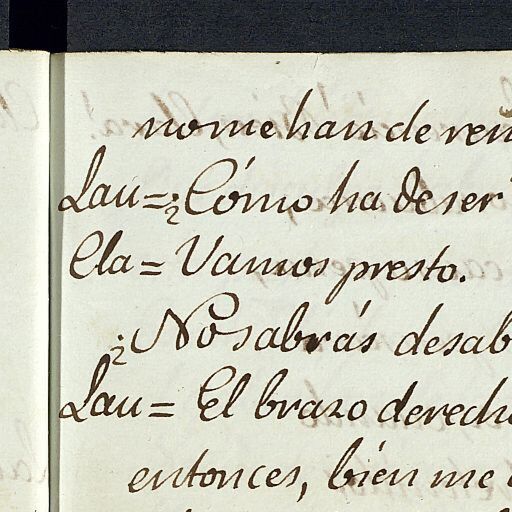 no me han de ren
Lau = ¿Cómo ha de ser
Cla = Vamos presto.
¿No sabrás desab
Lau = El brazo derecho
entonces, bién me